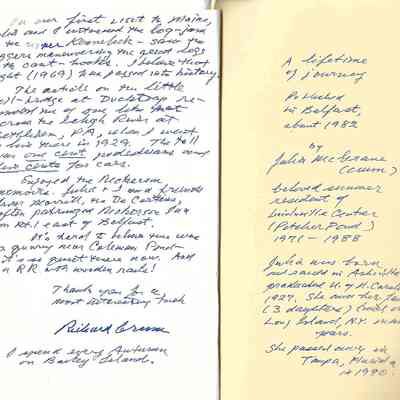 On our first visit to Maine,
and I witnessed the log-jam
the upper Kennebec - saw the
loggers maneuvering the great logs
cant-hooks. I believe that
(1969) has passed into history.
The article on the little
toll-bridge at Ducktrap re-
minded me of one like that
across the Lehigh River at
Bethlehem, PA, when I went
to live there in 1929. The toll
was one cent pedestrians and
five cents for cars.
Enjoyed the Pecker
memoirs. Julia & I and friends
Morrill, the De
often patronized Professor
on Rt. 1 east of Belfast.
It's hard to believe there was
a quarry near Coleman Pond -
it's so quiet there now. And
a RR with wooden rails!
Thank you for a
most interesting book
Richard Crum
I spend every Autumn
on Bailey Island.
A lifetime
of journey
Published
in Belfast,
about 1982
by
Julia McGrane
(Crum)
beloved summer
resident of
Lincolnville Center
(Pitcher Pond)
1971 - 1988
Julia was born
and raised in Asheville
graduated U. of N. Carol
1927. She and her fam
(3 daughters) lived on
Long Island, N.Y. many
years.
She passed away in
Tampa, Florida
in 1990.